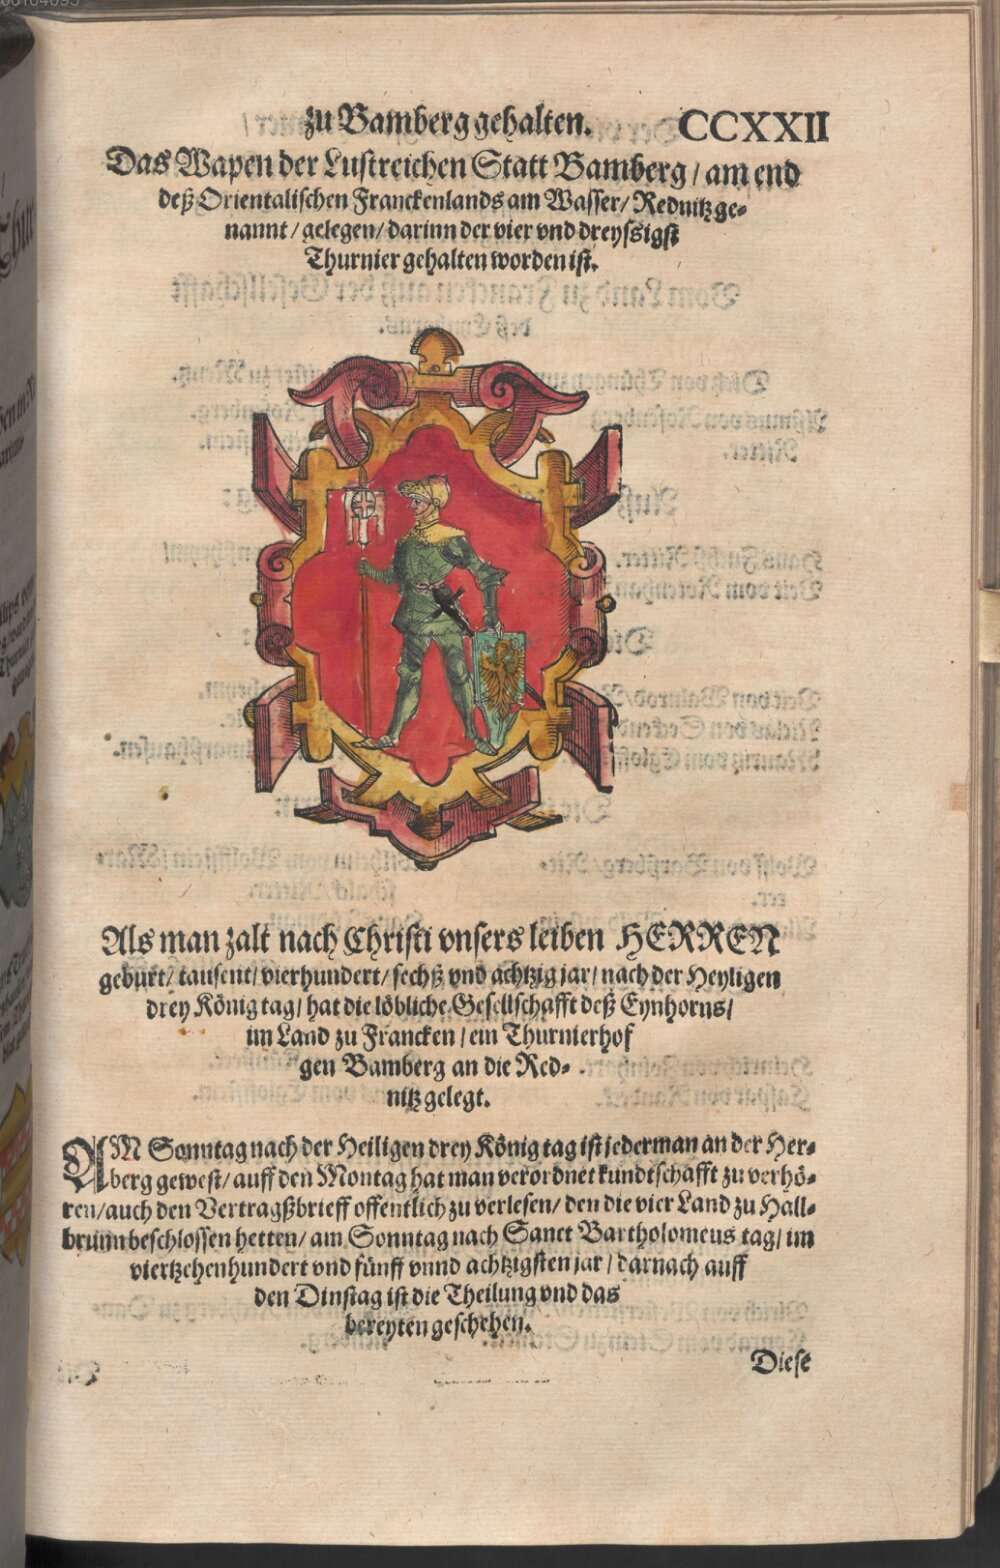 zu Bamberg gehalten. CCXXII
Das Wapen der Lustreichen Statt Bamberg / am end
deß Orientalischen Franckenlands am Wasser / Rednitz ge-
nannt / gelegen / darinn der vier vnd dreyssigst
Thurnier gehalten worden ist.
Als man zalt nach Christi vnsers leiben HERREN
geburt / tausent / vierhundert / sechß vnd achtzig jar / nach der Heyligen
drey König tag / hat die löbliche Gesellschafft deß Eynhorns /
im Land zu Francken / ein Thurnierhof
gen Bamberg an die Red-
nitz gelegt.
AM Sonntag nach der Heiligen drey König tag ist jederman an der Her-
berg gewest / auff den Montag hat man verordnet kundtschafft zu verhö-
ren / auch den Vertragßbrieff offentlich zu verlesen / den die vier Land zu Hall-
brunn beschlossen hetten / am Sonntag nach Sanct Bartholomeus tag / im
viertzehenhundert vnd fünff vnnd achtzigsten jar / darnach auff
den Dinstag ist die Theilung vnd das
bereyten geschehen.
Diese